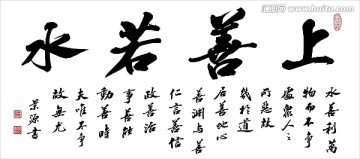 上善若水
水善利萬
物而不爭
處眾人之
所惡故
幾於道
居善地心
善淵与善
仁言善信
政善治
事善能
動善時
夫唯不爭
故無尤